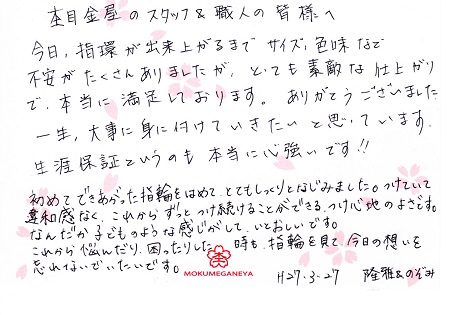 杢目金屋のスタッフ&職人の皆様へ
今日、指環が出来上がるまで サイズ、色味など
不安がたくさんありましたが、とても素敵な仕上がり
で、本当に満足しております。ありがとうございました
一生、大事に身に付けていきたいと思っています。
生涯保証というのも本当に心強いです!!
初めてできあがった指輪をはめて、とてもしっくりとなじみました。つけていて
違和感なく、これからずっとつけ続けることができる、つけ心地のよさです。
なんだか子どものような感じがして、いとおしいです。
これから悩んだり、困ったりした時も、指輪を見て今日の想いを
忘れないでいたいです。
MOKUMEGANEYA
H27.3.27 隆雅&のぞみ